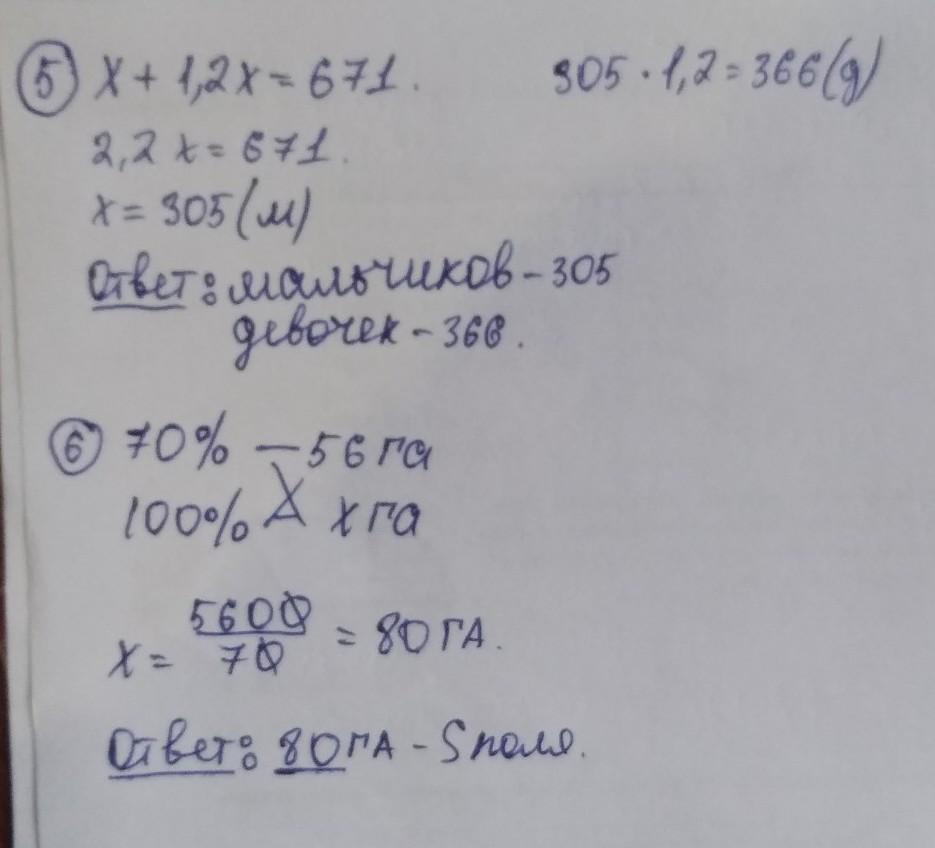 5 x + 1,2x = 671. 305 · 1,2 = 366 (д)
2,2 x = 671.
x = 305 (м)
Ответ: мальчиков - 305
девочек - 366.
6 70% — 56 га
100% x га
x = 5600/70 = 80 ГА.
Ответ: 80 ГА - S поля.